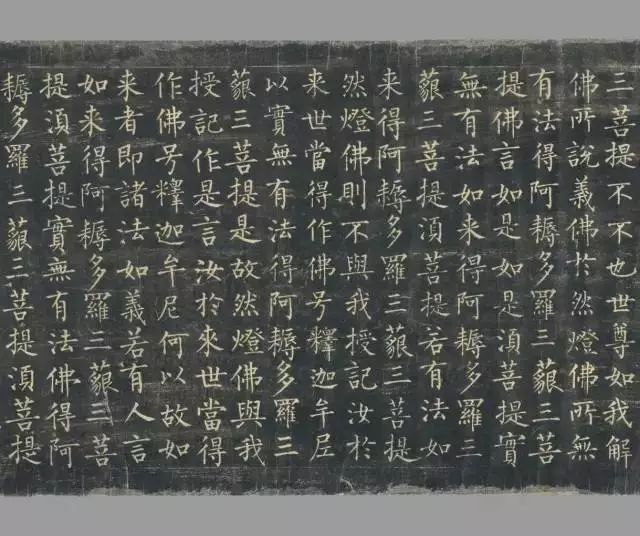 三菩提不不也世尊如我解
佛所說義佛於然燈佛所無
有法得阿耨多羅三藐三菩
提佛言如是如是湏菩提實
無有法如来得阿耨多羅三
藐三菩提湏菩提若有法如
来得阿耨多羅三藐三菩提
然燈佛則不與我授記汝於
来世當得作佛号釋迦牟尼
以實無有法得阿耨多羅三
藐三菩提是故然燈佛與我
授記作是言汝於来世當得
作佛号釋迦牟尼何以故如
来者即諸法如義若有人言
如来得阿耨多羅三藐三菩
提湏菩提實無有法佛得阿
耨多羅三藐三菩提湏菩提